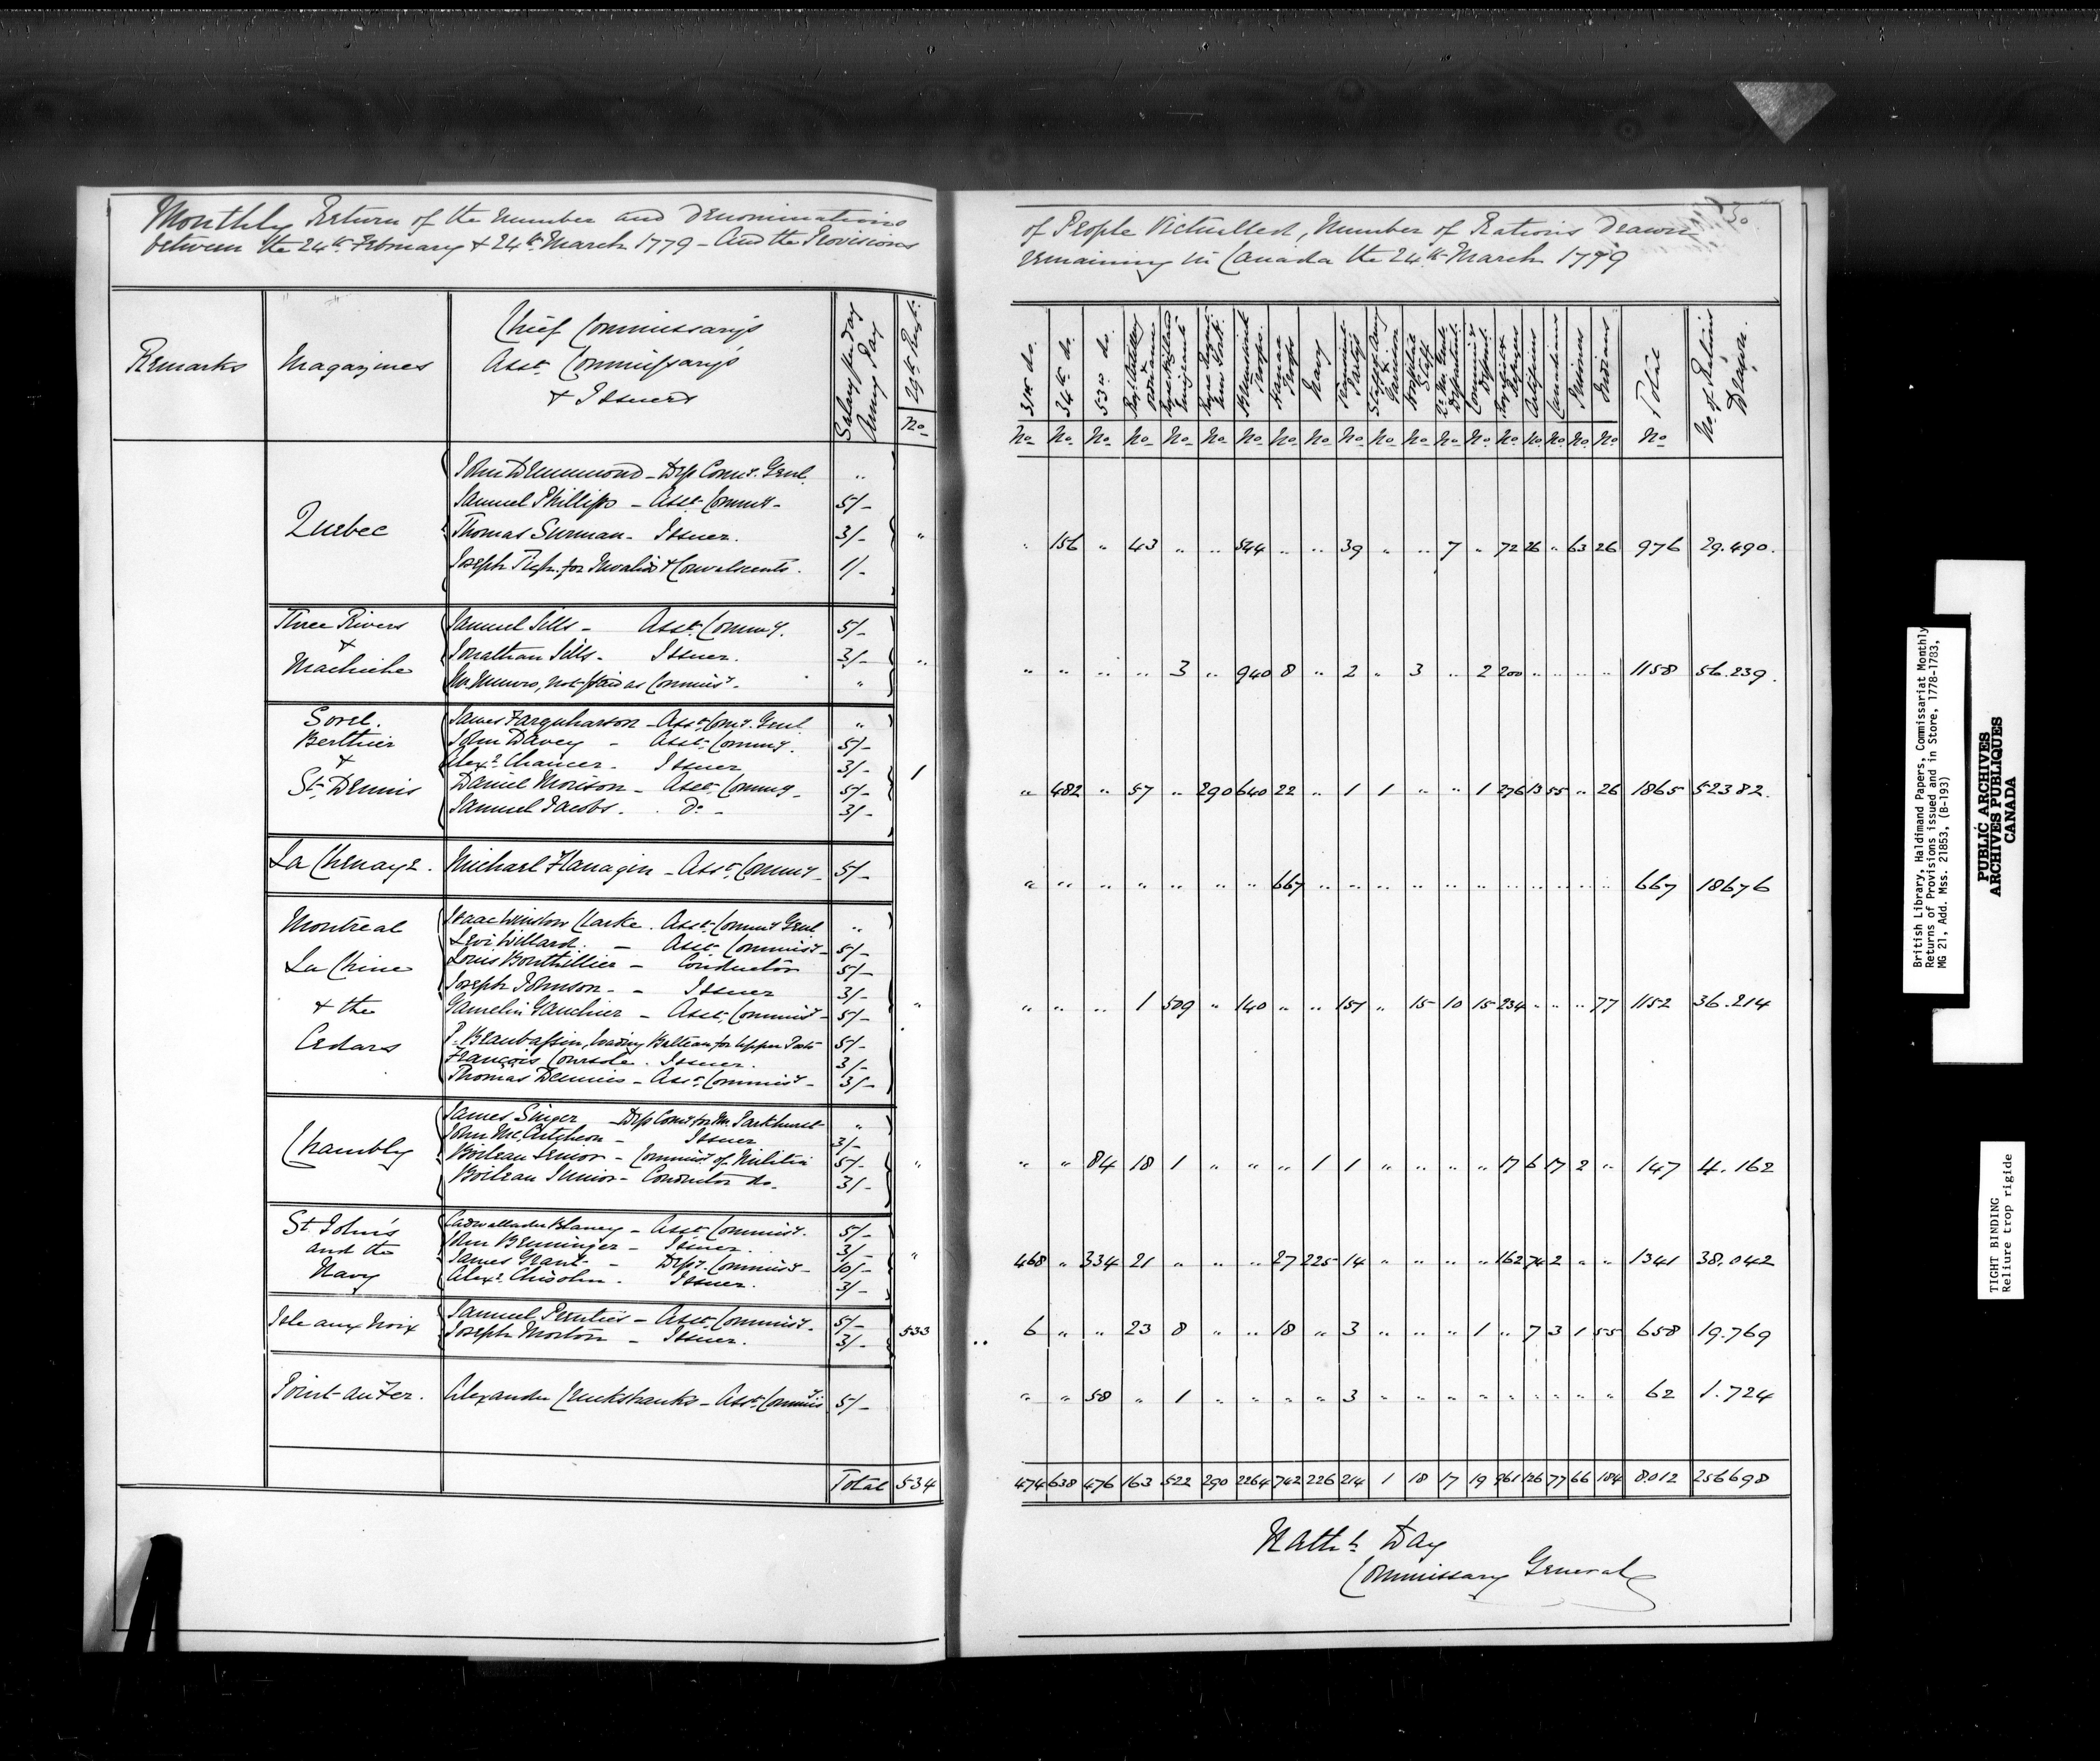 Monthly Return of the Number and Denominations of People Victualled, Number of Rations Drawn
between the 24th February & 24th March 1779 – And the Provisions remaining in Canada the 24th March 1779
30
Remarks | Magazines | Chief Commissary's Asst. Commissary's & Issuers | Salary per day Army Pay | 29th Regt. No. | 31st do. No. | 34th do. No. | 53rd do. No. | Roy. Artillery & Ordnance No. | Royal Highland Emigrants No. | Royal Regimt. New York No. | Brunswick Troops No. | Hanau Troops No. | Navy No. | No. | Staff of Army & Garrison No. | Hospital Staff No. | Qr. Mr. Genl. Department No. | Commiss'y Departmt. No. | Royalists & Refugees No. | Artificers No. | Canadians No. | Prisoners No. | Indians No. | Total No. | No. of Rations Drawn.
Quebec
John Drummond – Dep Comy. Genl. "
Samuel Phillips – Asst. Commy – 5/-
Thomas Surman – Issuer. 3/-
Joseph Pugh. for Invalids & Convalescents. 1/-
" " 156 " 43 " " 544 " " 39 " " 7 " 72 26 " 63 26 976 29.490.
Three Rivers & Machiche
Samuel Sills – Asst. Commy. 5/-
Jonathan Sills – Issuer. 3/-
Mr Munro, not paid as Commisy. "
" " " " " 3 " 940 8 " 2 " 3 " 2 200 " " " " 1158 56.239.
Sorel. Berthier & St. Dennis
James Farquharson – Asst. Comy. Genl. "
John Davey – Asst. Commy. 5/-
Alexr. Chamer – Issuer 3/-
Daniel Morison – Asst. Commy – 5/-
Samuel Jacobs – Do – 3/-
1 " 482 " 57 " 290 640 22 " 1 1 " " 1 276 13 55 " 26 1865 52382.
La Chenaye. Michael Flanagin – Asst. Commy – 5/-
" " " " " " " 667 " " " " " " " " " " " 667 18676
Montreal La Chine & the Cedars
Isaac Winslow Clarke. Asst. Commy Genl "
Levi Willard. – Asst. Commisy – 5/-
Louis Bouthillier – Conductor 5/-
Joseph Johnson – Issuer 3/-
Gamelin Gauchier – Asst. Commisy – 5/-
P. Beaubassin, loading Batteau for Upper Posts 5/-
François Coursole. Issuer. 3/-
Thomas Dennis – Asst. Commisy – 3/-
" " " " 1 509 " 140 " " 151 " 15 10 15 234 " " " 77 1152 36.214
Chambly
James Singer – Dep Comy for Mr. Parkhurst "
John McCutcheon – Issuer 3/-
Boileau Senior – Commisy of Militia 5/-
Boileau Junior – Conductor do. 3/-
" " " 84 18 1 " " " 1 1 " " " " 17 6 17 2 " 147 4.162
St. John's and the Navy
Cadwallader Blaney – Asst. Commisy. 5/-
John Breninger – Issuer. 3/-
James Grant – Depy. Commisy – 10/-
Alexr. Chisolm. Issuer. 3/-
" 468 " 334 21 " " " 27 225 14 " " " " 162 74 2 " " 1341 38.042
Isle aux Noix
Samuel – Asst. Commisy. 5/-
Joseph Morton – Issuer. 3/-
533 6 " " 23 8 " " 18 " 3 " " " 1 " 7 3 1 55 658 19.769
Point au Fer. Alexander Cruckshanks – Asst. Commis'y. 5/-
" " 58 " 1 " " " " 3 " " " " " " " " " 62 1.724
Total 534 474 638 476 163 522 290 2264 742 226 214 1 18 17 19 961 126 77 66 184 8.012 256698
Nathl. Day
Commissary General
British Library, Haldimand Papers, Commissariat Monthly
Returns of Provisions issued and in Store, 1778-1783,
MG 21, Add. Mss. 21853, (B-193)
PUBLIC ARCHIVES
ARCHIVES PUBLIQUES
CANADA
TIGHT BINDING
Reliure trop rigide